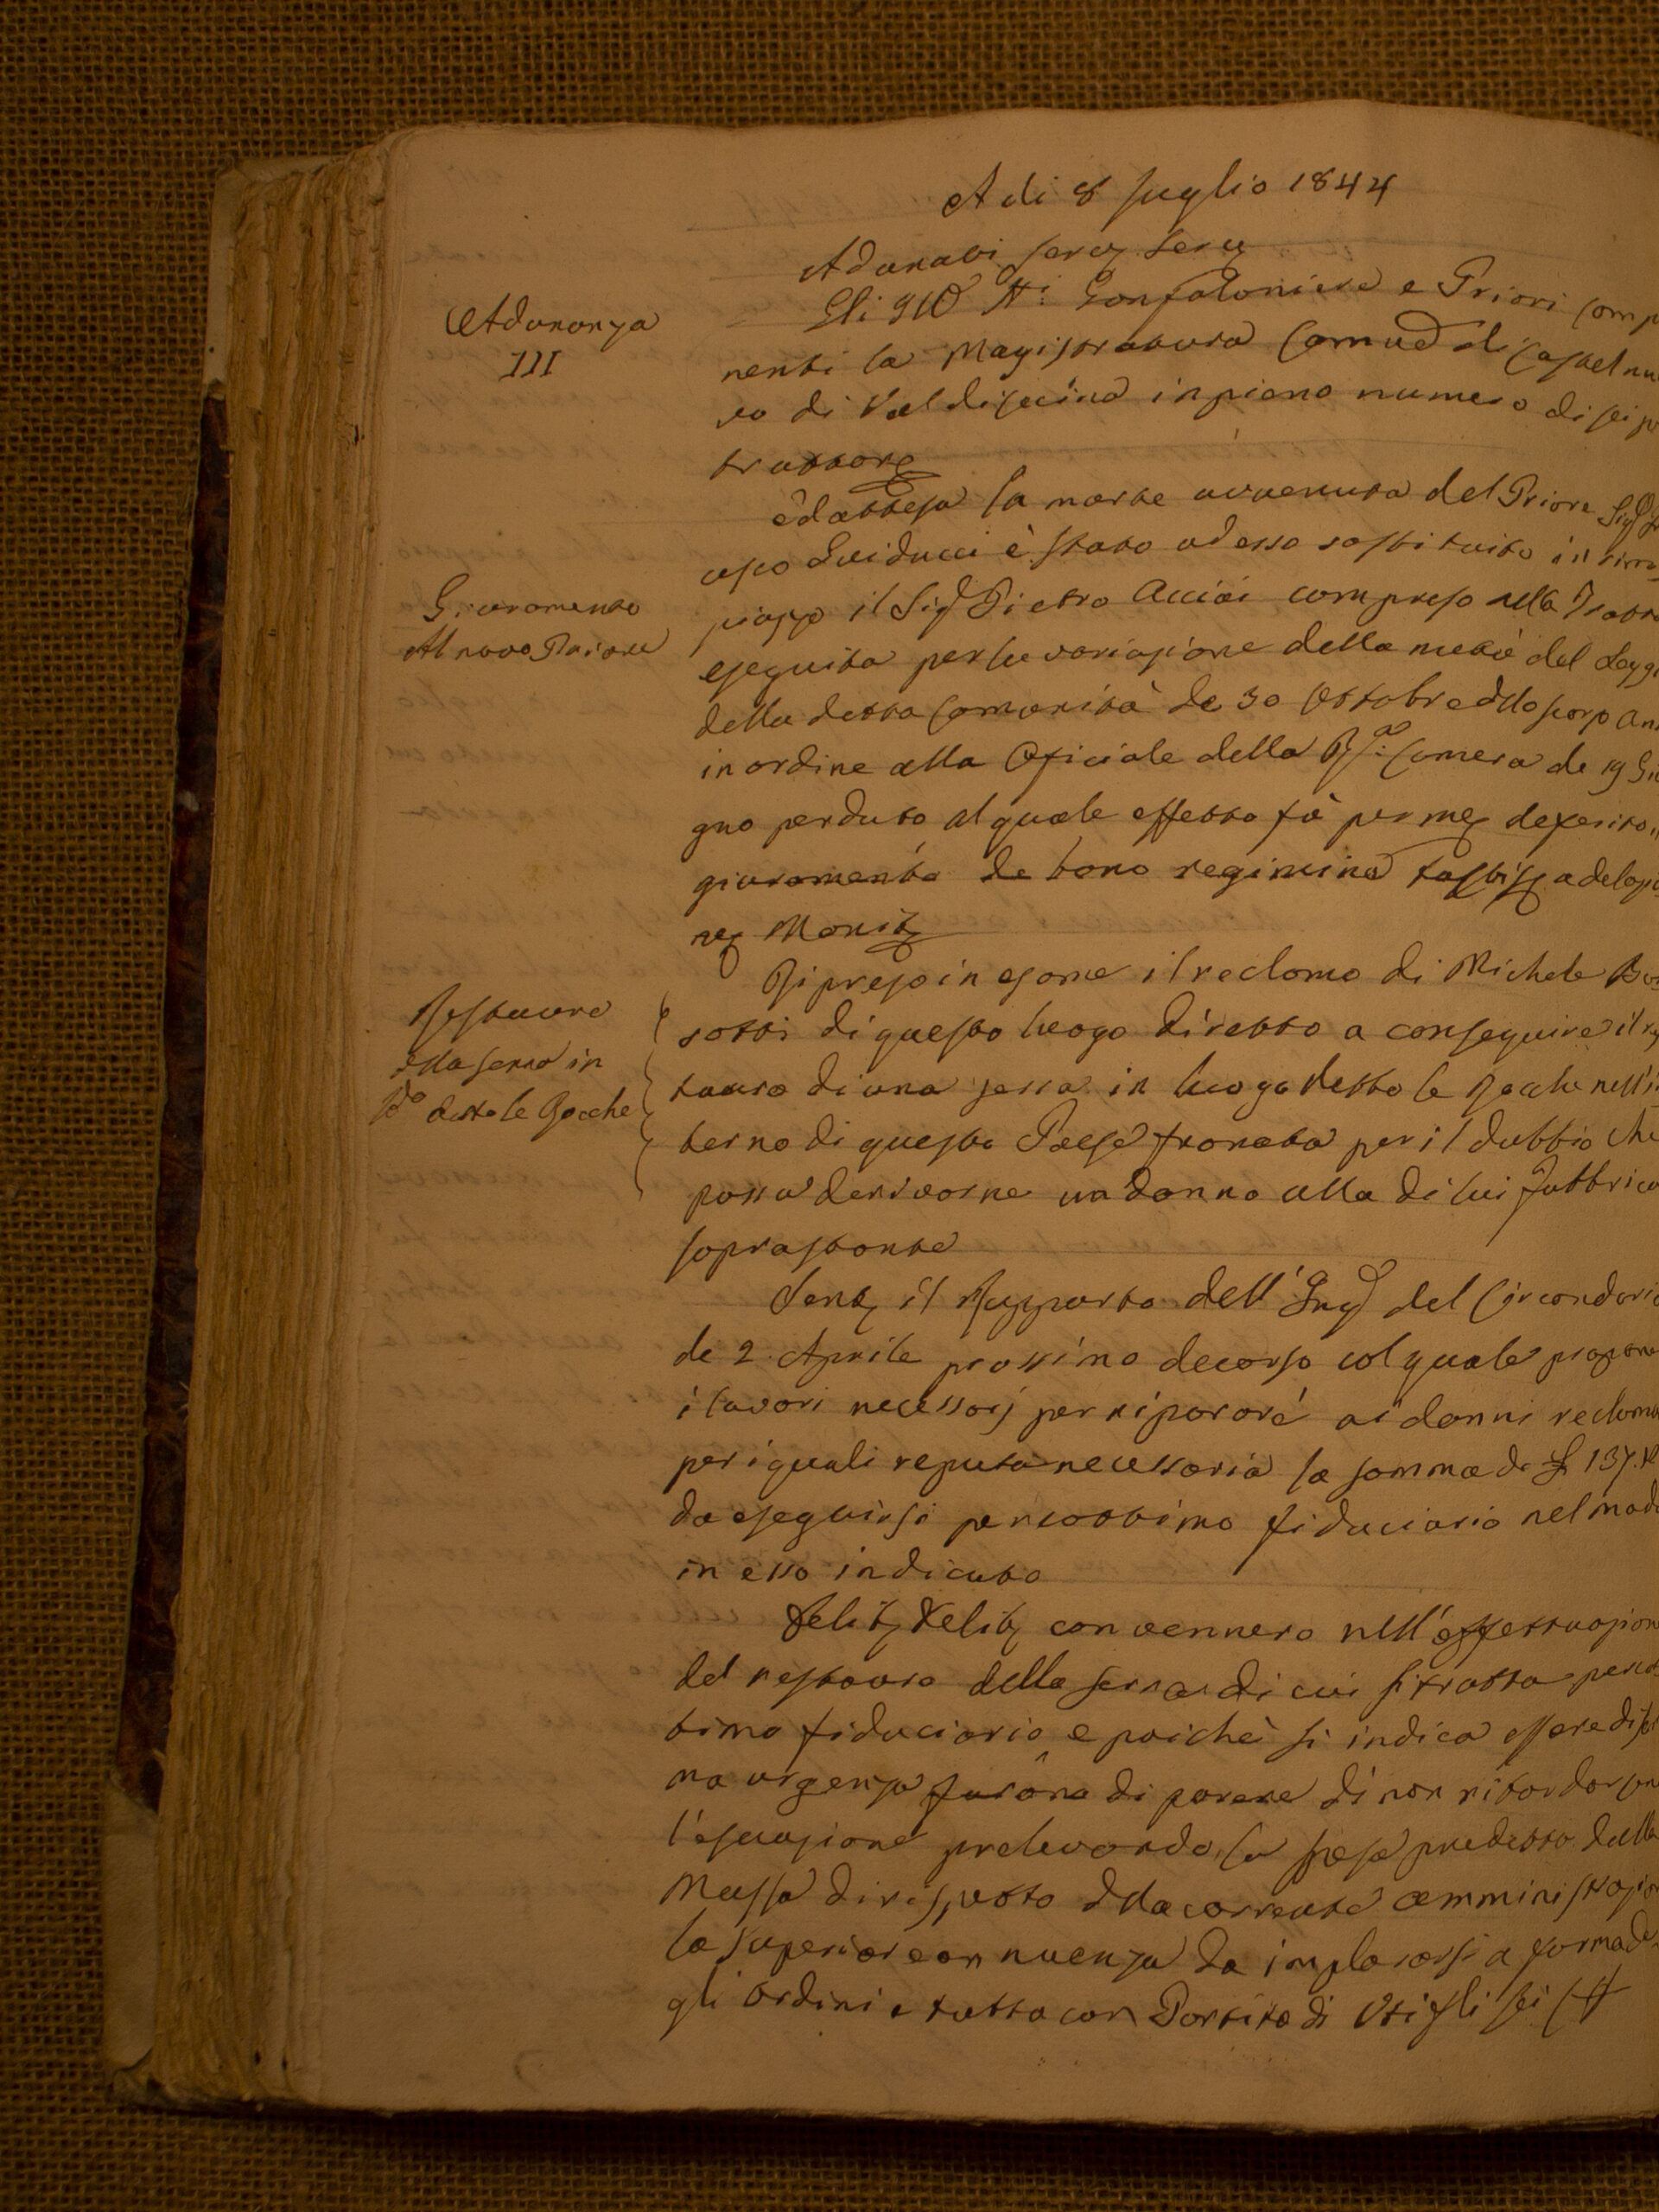 A di 8 luglio 1844
Adunati serv. serv.
Adunanza
III
Gli Ill.mi Gonfaloniere e Priori comp
nenti la Magistratura Com.le di Castelnu
vo di Valdicecina in pieno numero di sei p
trattare
ed attesa la morte avvenuta del Priore Sig.
Guiducci è stato ad esso sostituito in rim
Giuramento
Al novo Priore
piazzo il Sig. Pietro Acciai compreso nella Tratta
eseguita per la variazione della metà del Seggi
della detta Comunità de 30 Ottobre dello scorso an
in ordine alla Oficiale della R. Camera de 19 Giu
gno perduto al quale effetto fù per me deferito
giuramento de bono regimine
Monit.
Ripreso in esame il reclamo di Michele
Restauro
della serra in
detto le Rocche
sotti di questo luogo diretto a conseguire il re
tauro di una serra in luogo detto le Rocche nell'in
terno di questo Paese franata per il dubbio che
possa derivarne un danno alla di lui fabbrica
soprastante
Sent. il Rapporto dell'Ing. del Circondario
de 2. Aprile prossimo decorso col quale propone
i lavori necessarj per riparare ai danni reclama
per i quali reputa necessaria la somma di £ 137.
da eseguirsi per cottimo fiduciario nel modo
in esso indicato
Delib. Delib. convennero nell'effettuazione
del restauro della serra di cui si tratta per co
timo fiduciario e poichè si indica essere di
ma urgenza furono di parere di non ritardarsene
l'esecuzione prelevando la spesa predetta dalla
Massa di rispetto della corrente amministrazion
la superiore annuenza da implorarsi a forma de
gli ordini e tutto con Partito di Voti sei